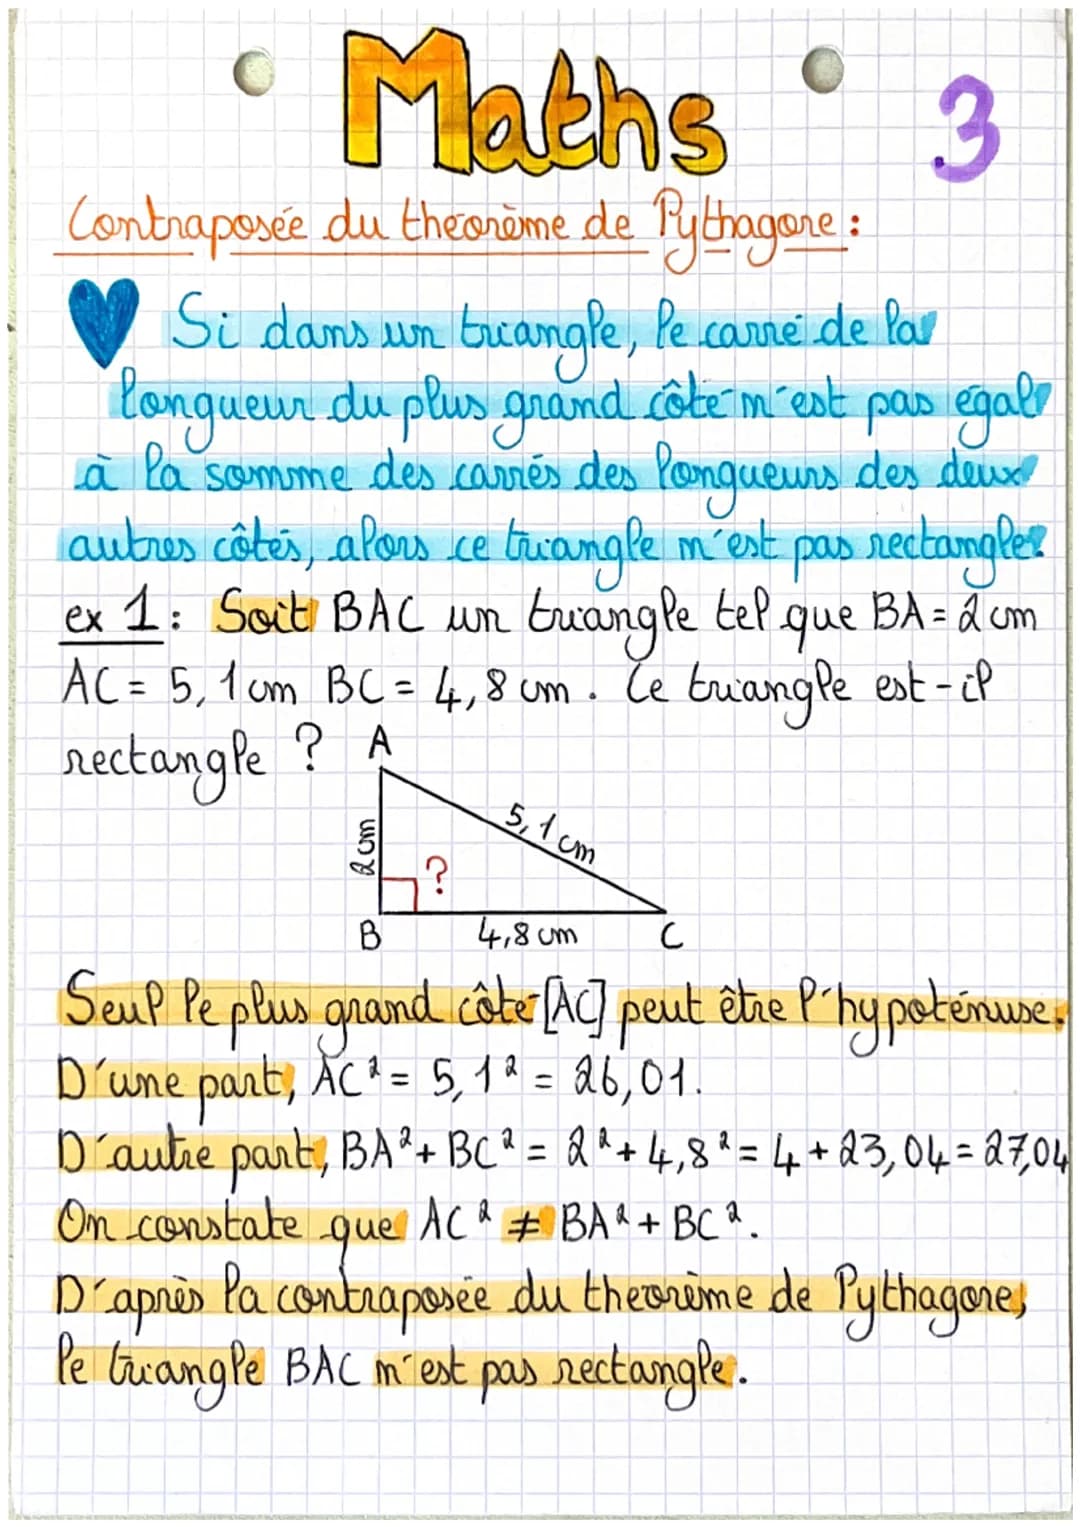 Maths
3
Contraposée du théorème de Pythagore :
Si dans un triangle, le carré de la
longueur du plus grand côté n'est pas égal
à la somme des carrés des longueurs des deux
autres côtés, alors ce triangle n'est pas rectangle.
ex 1 : Soit BAC un triangle tel que BA = 2 cm
AC = 5,1 cm BC = 4,8 cm. Ce triangle est-il
rectangle ?
A
5,1 cm
2 cm
?
B
4,8 cm
C
Seul le plus grand côté [AC] peut être l'hypoténuse.
D'une part, AC² = 5,1² = 26,01.
D'autre part, BA² + BC² = 2² + 4,8² = 4 + 23,04 = 27,04
On constate que AC² ≠ BA² + BC².
D'après la contraposée du théorème de Pythagore,
le triangle BAC n'est pas rectangle.